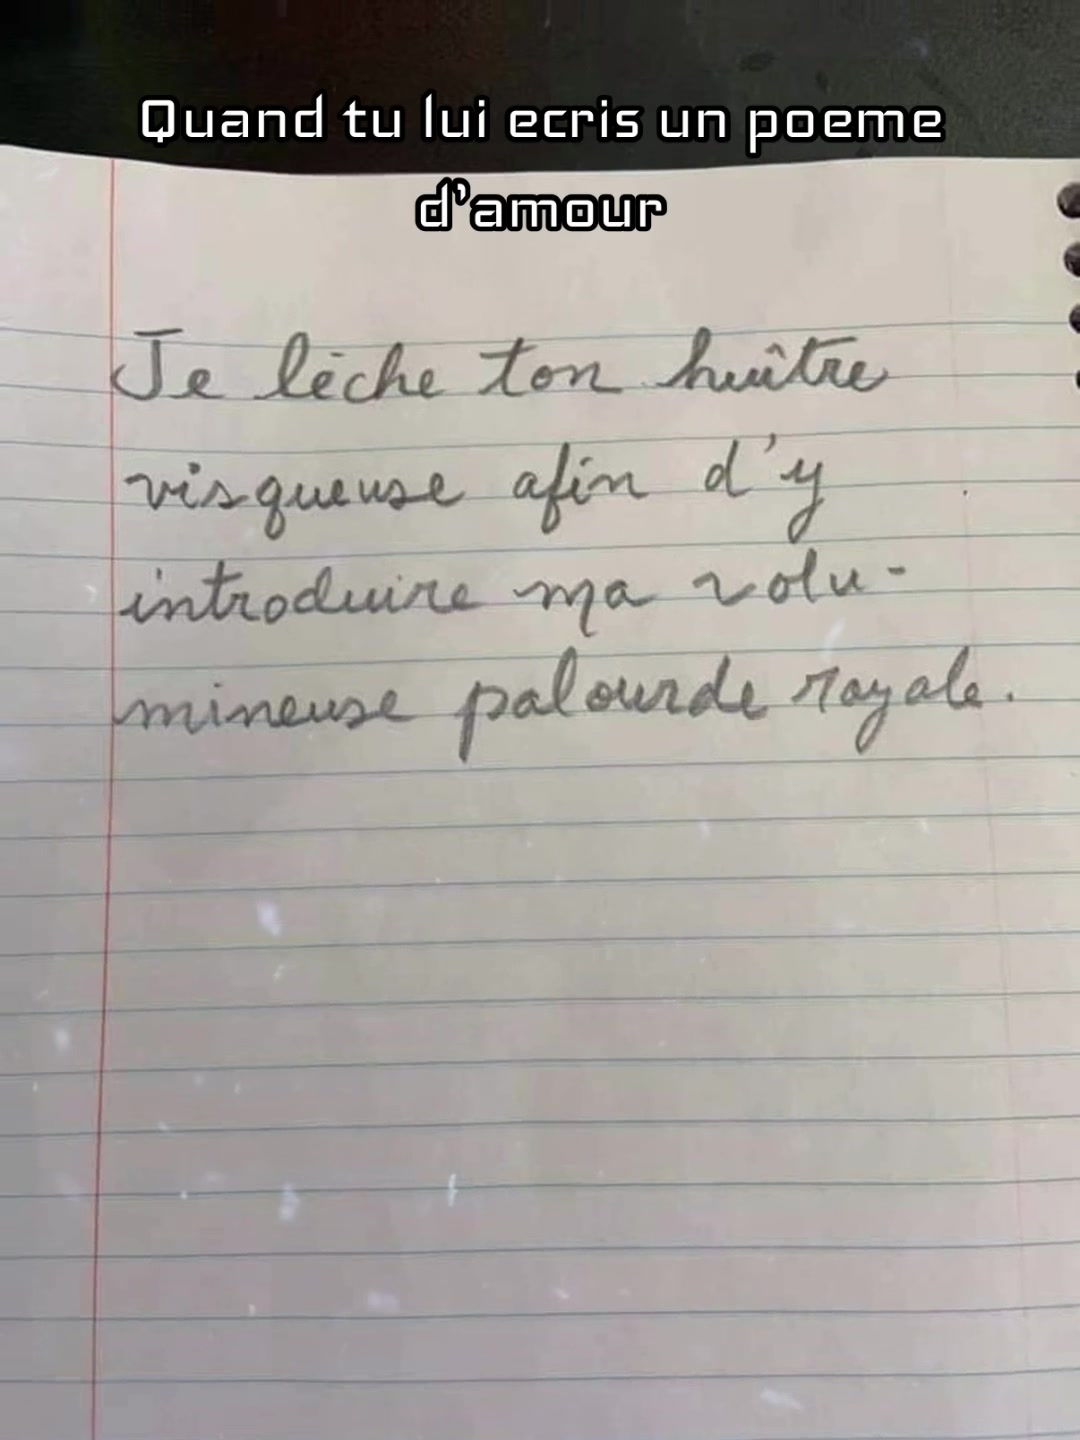 Quand tu lui ecris un poeme
d'amour
Je lèche ton huître
visqueuse afin d'y
introduire ma volu-
mineuse palourde royale.